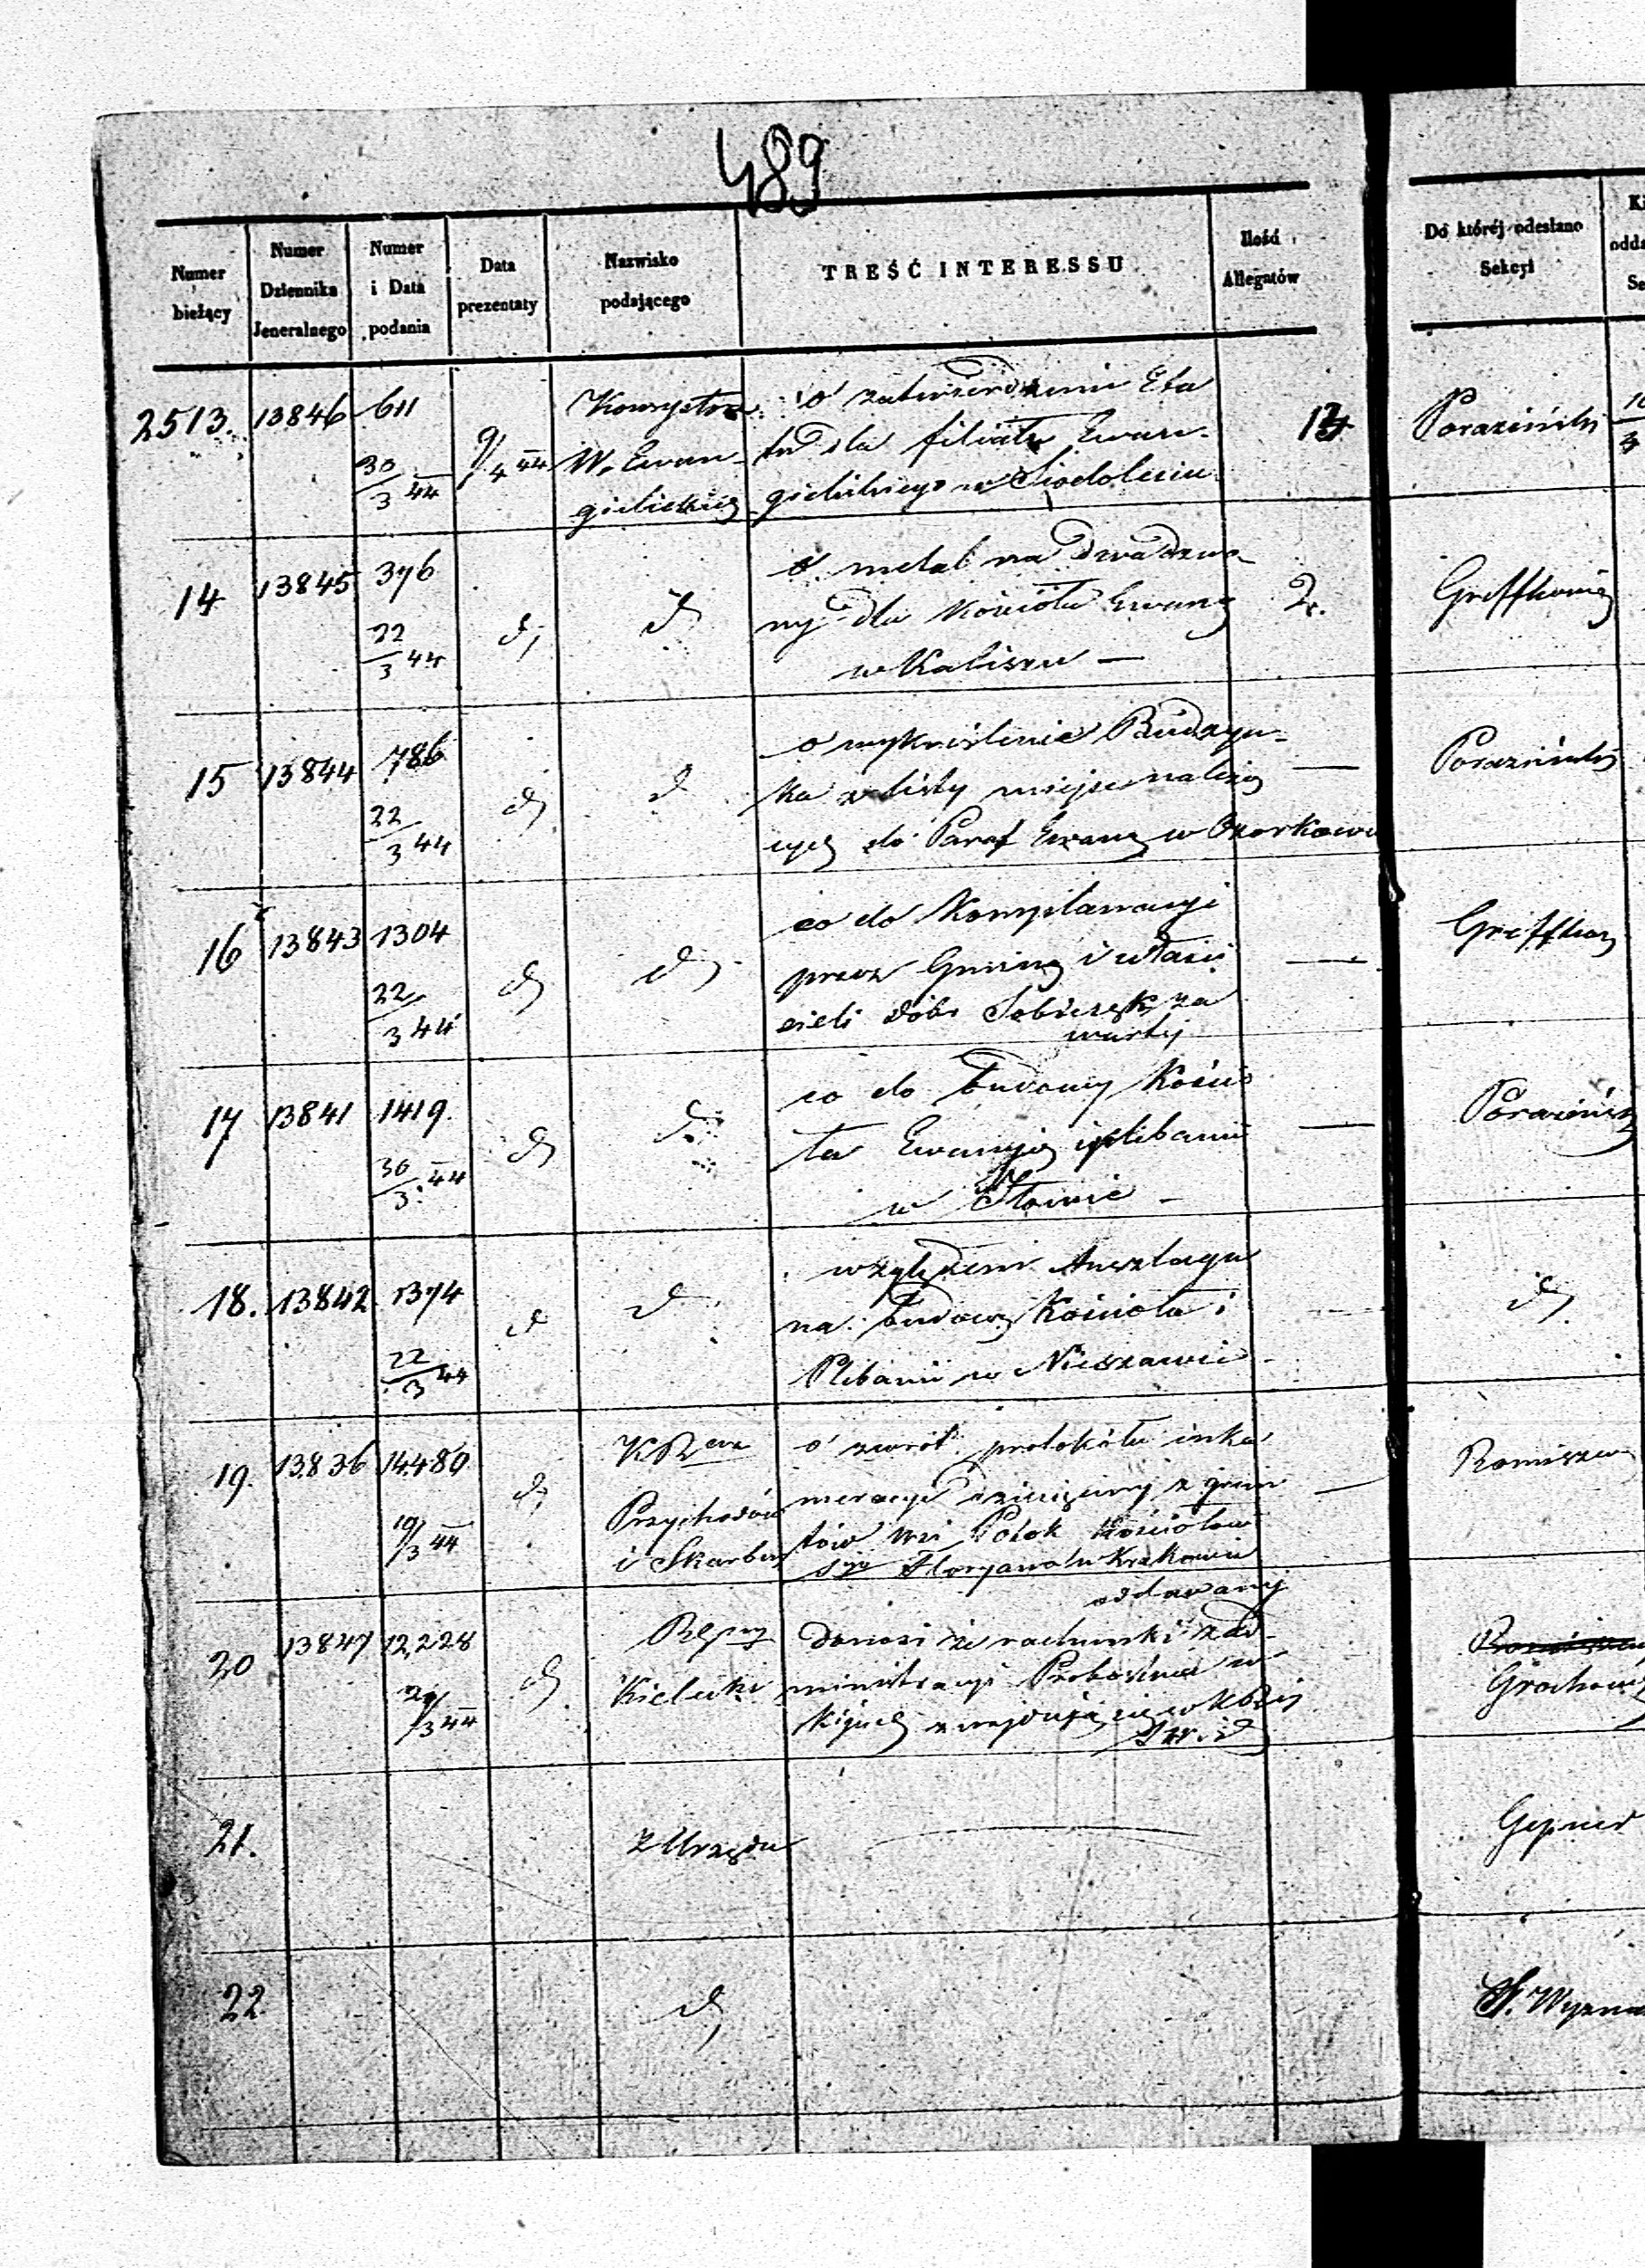 489
Numer bieżący
Numer Dziennika Jeneralnego
Numer i Data podania
Data prezentaty
Nazwisko podającego
TREŚĆ INTERESSU
Ilość Allegatów
Do któréj odesłano Sekcyi
2513. 13846 611 30/3 44 9/4 44
Konsystorz
W. Ewan-
gielickiej
o zatwierdzenie Eta
tu dla filiału Ewan-
gielickiego w
13
Poraziński
14 13845 376 22/3 44 d d
o metal na dwa dzwo-
ny dla Kościoła Ewang
w Kaliszu —
2.
15 13844 786 22/3 44 d d
o wykreślenie Budzyn-
ka z listy miejsc należą
cych do Paraf Ewang w Ozorkowie
—
Poraziński
16 13843 1304 22/3 44 d d
co do Komplanacyi
przez Gminę i właści
cieli dóbr Sobieseki za
warty
—
17 13841 1419. 30/3 44 d d
co do budowy Kości
ła Ewangie i plebanii
w Iłowie —
—
Poraziński
18. 13842 1374 22/3 44 d d
względem Anszlagu
na budowę Kościoła i
Plebanii w Nieszawie
d
19. 13836 14480 19/3 44 d
Przychodów
i Skarbu
o zwrot protokółu inka
meracyi dziesięciny z grun
tów wsi Potok Kościołowi
Sgo Floryana w Krakowie
oddawanej
—
20 13847 12,228 /3 44 d
Kielecki
donosi że rachunki z ad-
ministracyi Probostwa w
Kijach znajdują się w
21.
z Urzędu
Gepner
22 d